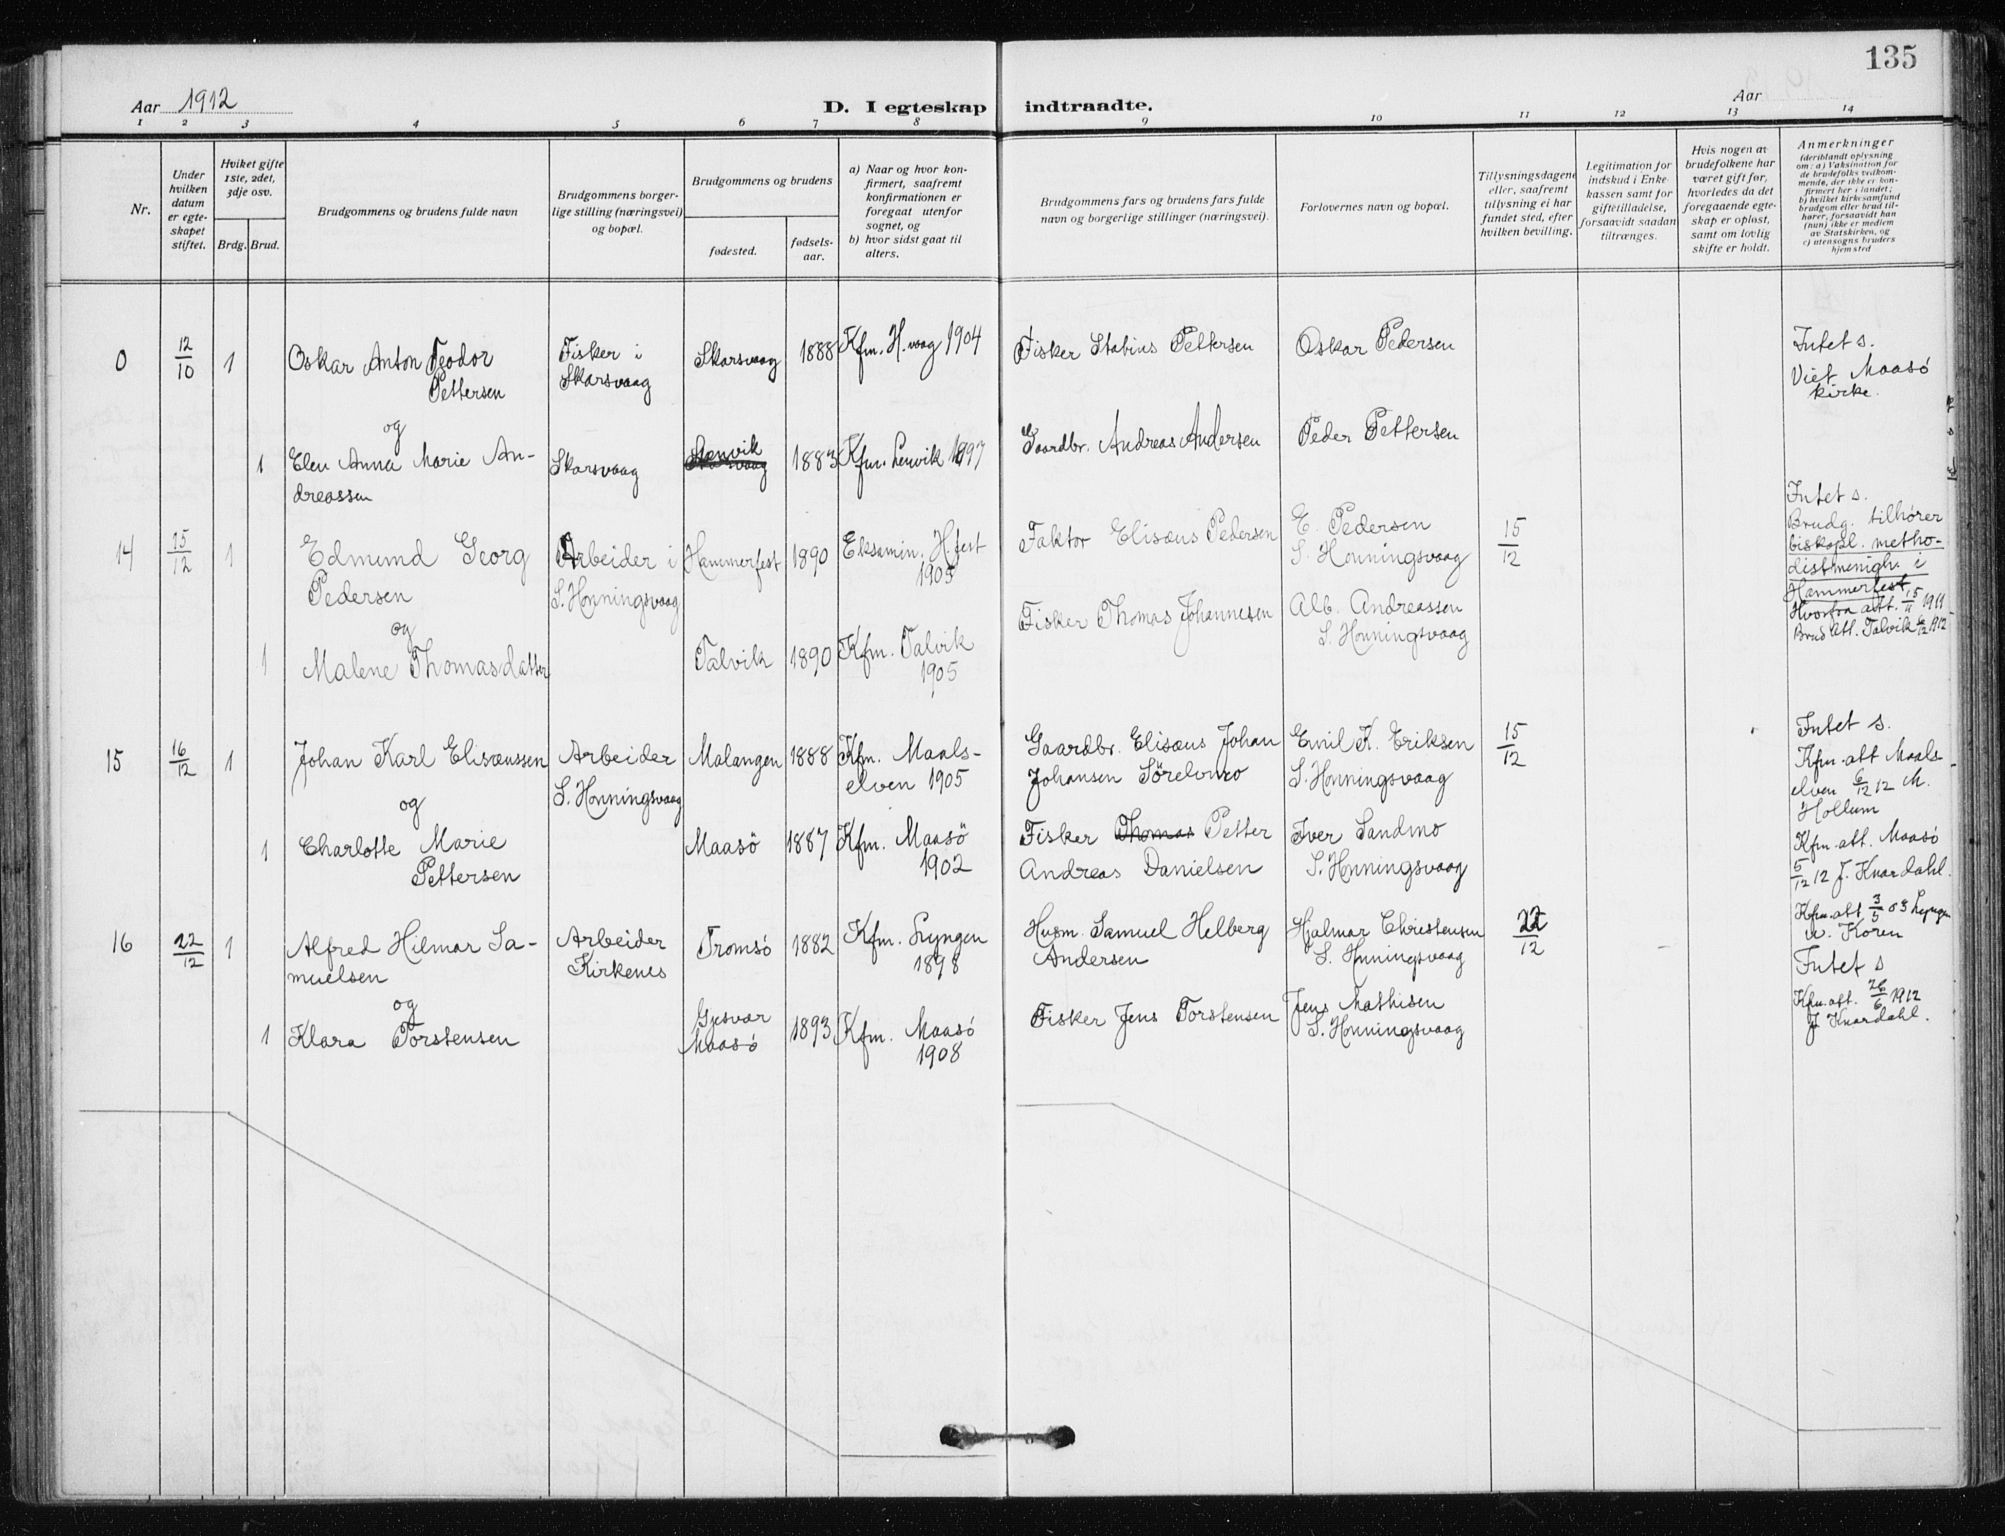 135
Aar 1912
D. I egteskap indtraadte.
Aar
1 2 3 4 5 6 7 8 9 10 11 12 13 14
Nr.
Under hvilken datum er egteskapet stiftet.
Hvilket gifte 1ste, 2det, 3dje osv.
Brdg. Brud.
Brudgommens og brudens fulde navn
Brudgommens borgerlige stilling (næringsvei) og bopæl.
Brudgommens og brudens
fødested.
fødselsaar.
a) Naar og hvor konfirmert, saafremt konfirmationen er foregaat utenfor sognet, og
b) hvor sidst gaat til alters.
Brudgommens fars og brudens fars fulde navn og borgerlige stillinger (næringsvei).
Forlovernes navn og bopæl.
Tillysningsdagene eller, saafremt tillysning ei har fundet sted, efter hvilken bevilling.
Legitimation for indskud i Enkekassen samt for giftetilladelse, forsaavidt saadan tiltrænges.
Hvis nogen av brudefolkene har været gift før, hvorledes da det foregaaende egteskap er opløst, samt om lovlig skifte er holdt.
Anmerkninger
(deriblandt oplysning om: a) Vaksination for de brudefolks vedkommende, der ikke er konfirmert her i landet; b) hvilket kirkesamfund brudgom eller brud tilhører, forsaavidt han (hun) ikke er medlem av Statskirken, og c) utensogns bruders hjemsted
0 12/10 1 Oskar Anton Teodor Pettersen
Fisker i Skarsvaag
Skarsvaag 1888 Kfm. H.vaag 1904
Fisker Pettersen
Oskar Pedersen
Intet s.
Viet Maasö kirke.
og
1 Elen Anna Marie Andreassen
Skarsvaag
Lenvik 1883 Kfm. Lenvik 1897
Gaardbr. Andreas Andersen
Peder Pettersen
14 15/12 1 Edmund Georg Pedersen
Arbeider i S. Honningsvaag
Hammerfest 1890 Eksamin. H.fest 1905
Faktor Elisæus Pedersen
E. Pedersen S. Honningsvaag
15/12
Intet s.
Brudg. tilhører biskopl. methodistmenigh. i Hammerfest
Hvorfra att. 15/11 1911
Brud att. Talvik 6/12 1912
og
1 Malene Thomasdatter
Talvik 1890 Kfm. Talvik 1905
Fisker Thomas Johannesen
Alb. Andreassen S. Honningsvaag
15 16/12 1 Johan Karl Elisæussen
Arbeider S. Honningsvaag
Malangen 1888 Kfm. Maalselven 1905
Gaardbr. Elisæus Johan Johansen
Emil K. Eriksen S. Honningsvaag
15/12
Intet s.
Kfm. att Maalselven 6/12 12 M. Hollum
og
1 Charlotte Marie Pettersen
Maasö 1887 Kfm. Maasö 1902
Fisker Thomas Petter Andreas Danielsen
Iver Sandmo S. Honningsvaag
Kfm. att. Maasö 5/12 12 J. Knardahl.
16 22/12 1 Alfred Hilmar Samuelsen
Arbeider Kirkenes
Tromsö 1882 Kfm. Lyngen 1898
Husm. Samuel Helberg Andersen
Hjalmar Christensen S. Honningsvaag
22/12
Kfm. att 3/5 03 Lyngen Koren
Intet s
og
1 Klara Torstensen
Gjesvar Maasö 1893 Kfm. Maasö 1908
Fisker Jens Torstensen
Jens Mathisen S. Honningsvaag
Kfm. att. 26/6 1912 J Knardahl.